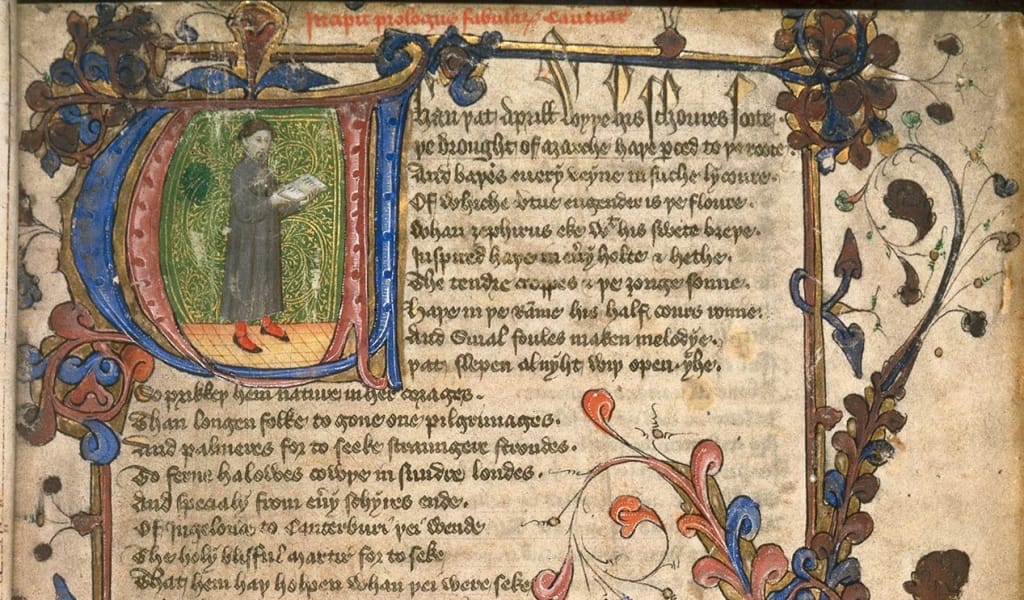 Incipit prologus fabular Cantuar
Whan þat Aprill wyþe his schoures soote.
þe drought of Marche haþe perced to þe roote.
And baþed euery veyne in suche lycoure.
Of whiche vtue engendred is þe floure.
Whan zephirus eke wt his swete breþe.
Inspired haþe in eu'y holte & hethe.
The tendre croppes & þe ȝonge sonne.
haþe in þe Rāme his half cours ronne.
And Smal foules maken melodye.
þat slepen al nyht wiþ open yhe.
So prikkeþ hem nature in her corages.
Than longen folke to gone one pilgrimages.
And palmeres for to seeke straungere strondes.
To ferne halowes cowþe in sundre londes.
And specialy from eu'y schyres ende.
Of Ingelonde to Canterburi þei wende
The holy blisful martir for to seke
That hem haþ holpen whan þei were seke